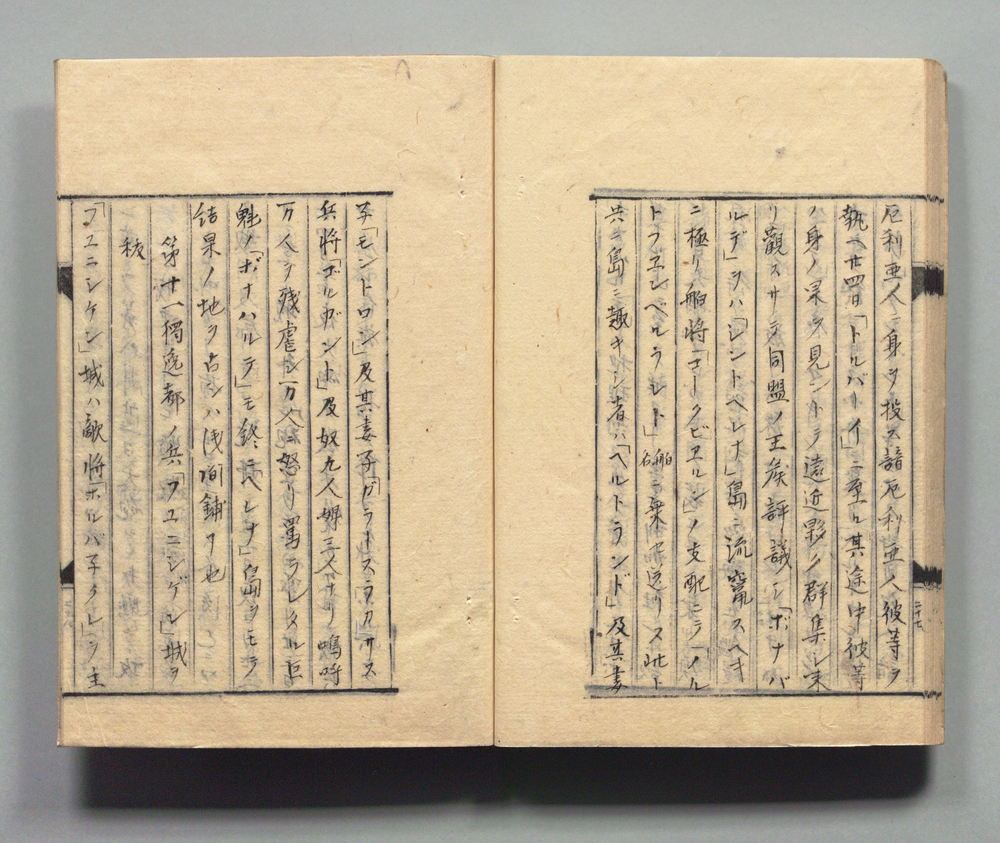 厄利亜人ニ身ヲ投ス諳厄利亜人彼等ヲ
執ヘ廿四日「トルバトイ」ニ至ル其途中彼等
ノ身ノ果ヲ見ントテ遠近夥ク群集シ来
リ觀スサテ同盟ノ王矦評議シ「ボナパ
ルテ」ヲハ「シントヘレナ」島ニ流竄スヘキ
ニ極リ舶将「コークビヱルン」ノ支配ニテ「イル
トフヱンベルラレト」舶名ニ乗セ送リス此ト
共ニ島ニ趣キシ者ハ「ベルトランド」及其妻
二十七
子「モントロン」及其妻子「グラートスラカサス
兵将「ゴルガント」及奴九人婢三人ナリ嗚呼
万人ヲ残虐シ万人ニ怒リ罵ラレタル巨
魁ノ「ボナハルテ」モ終ニ「ヘレナ」島ヲモテ
結果ノ地ヲ占シハ浅猿鋪ヿ也
第十一獨逸都ノ兵「フユニンゲン」城ヲ
抜
「フユニンケン」城ハ敵将「ホルバ子グレ」ラ主